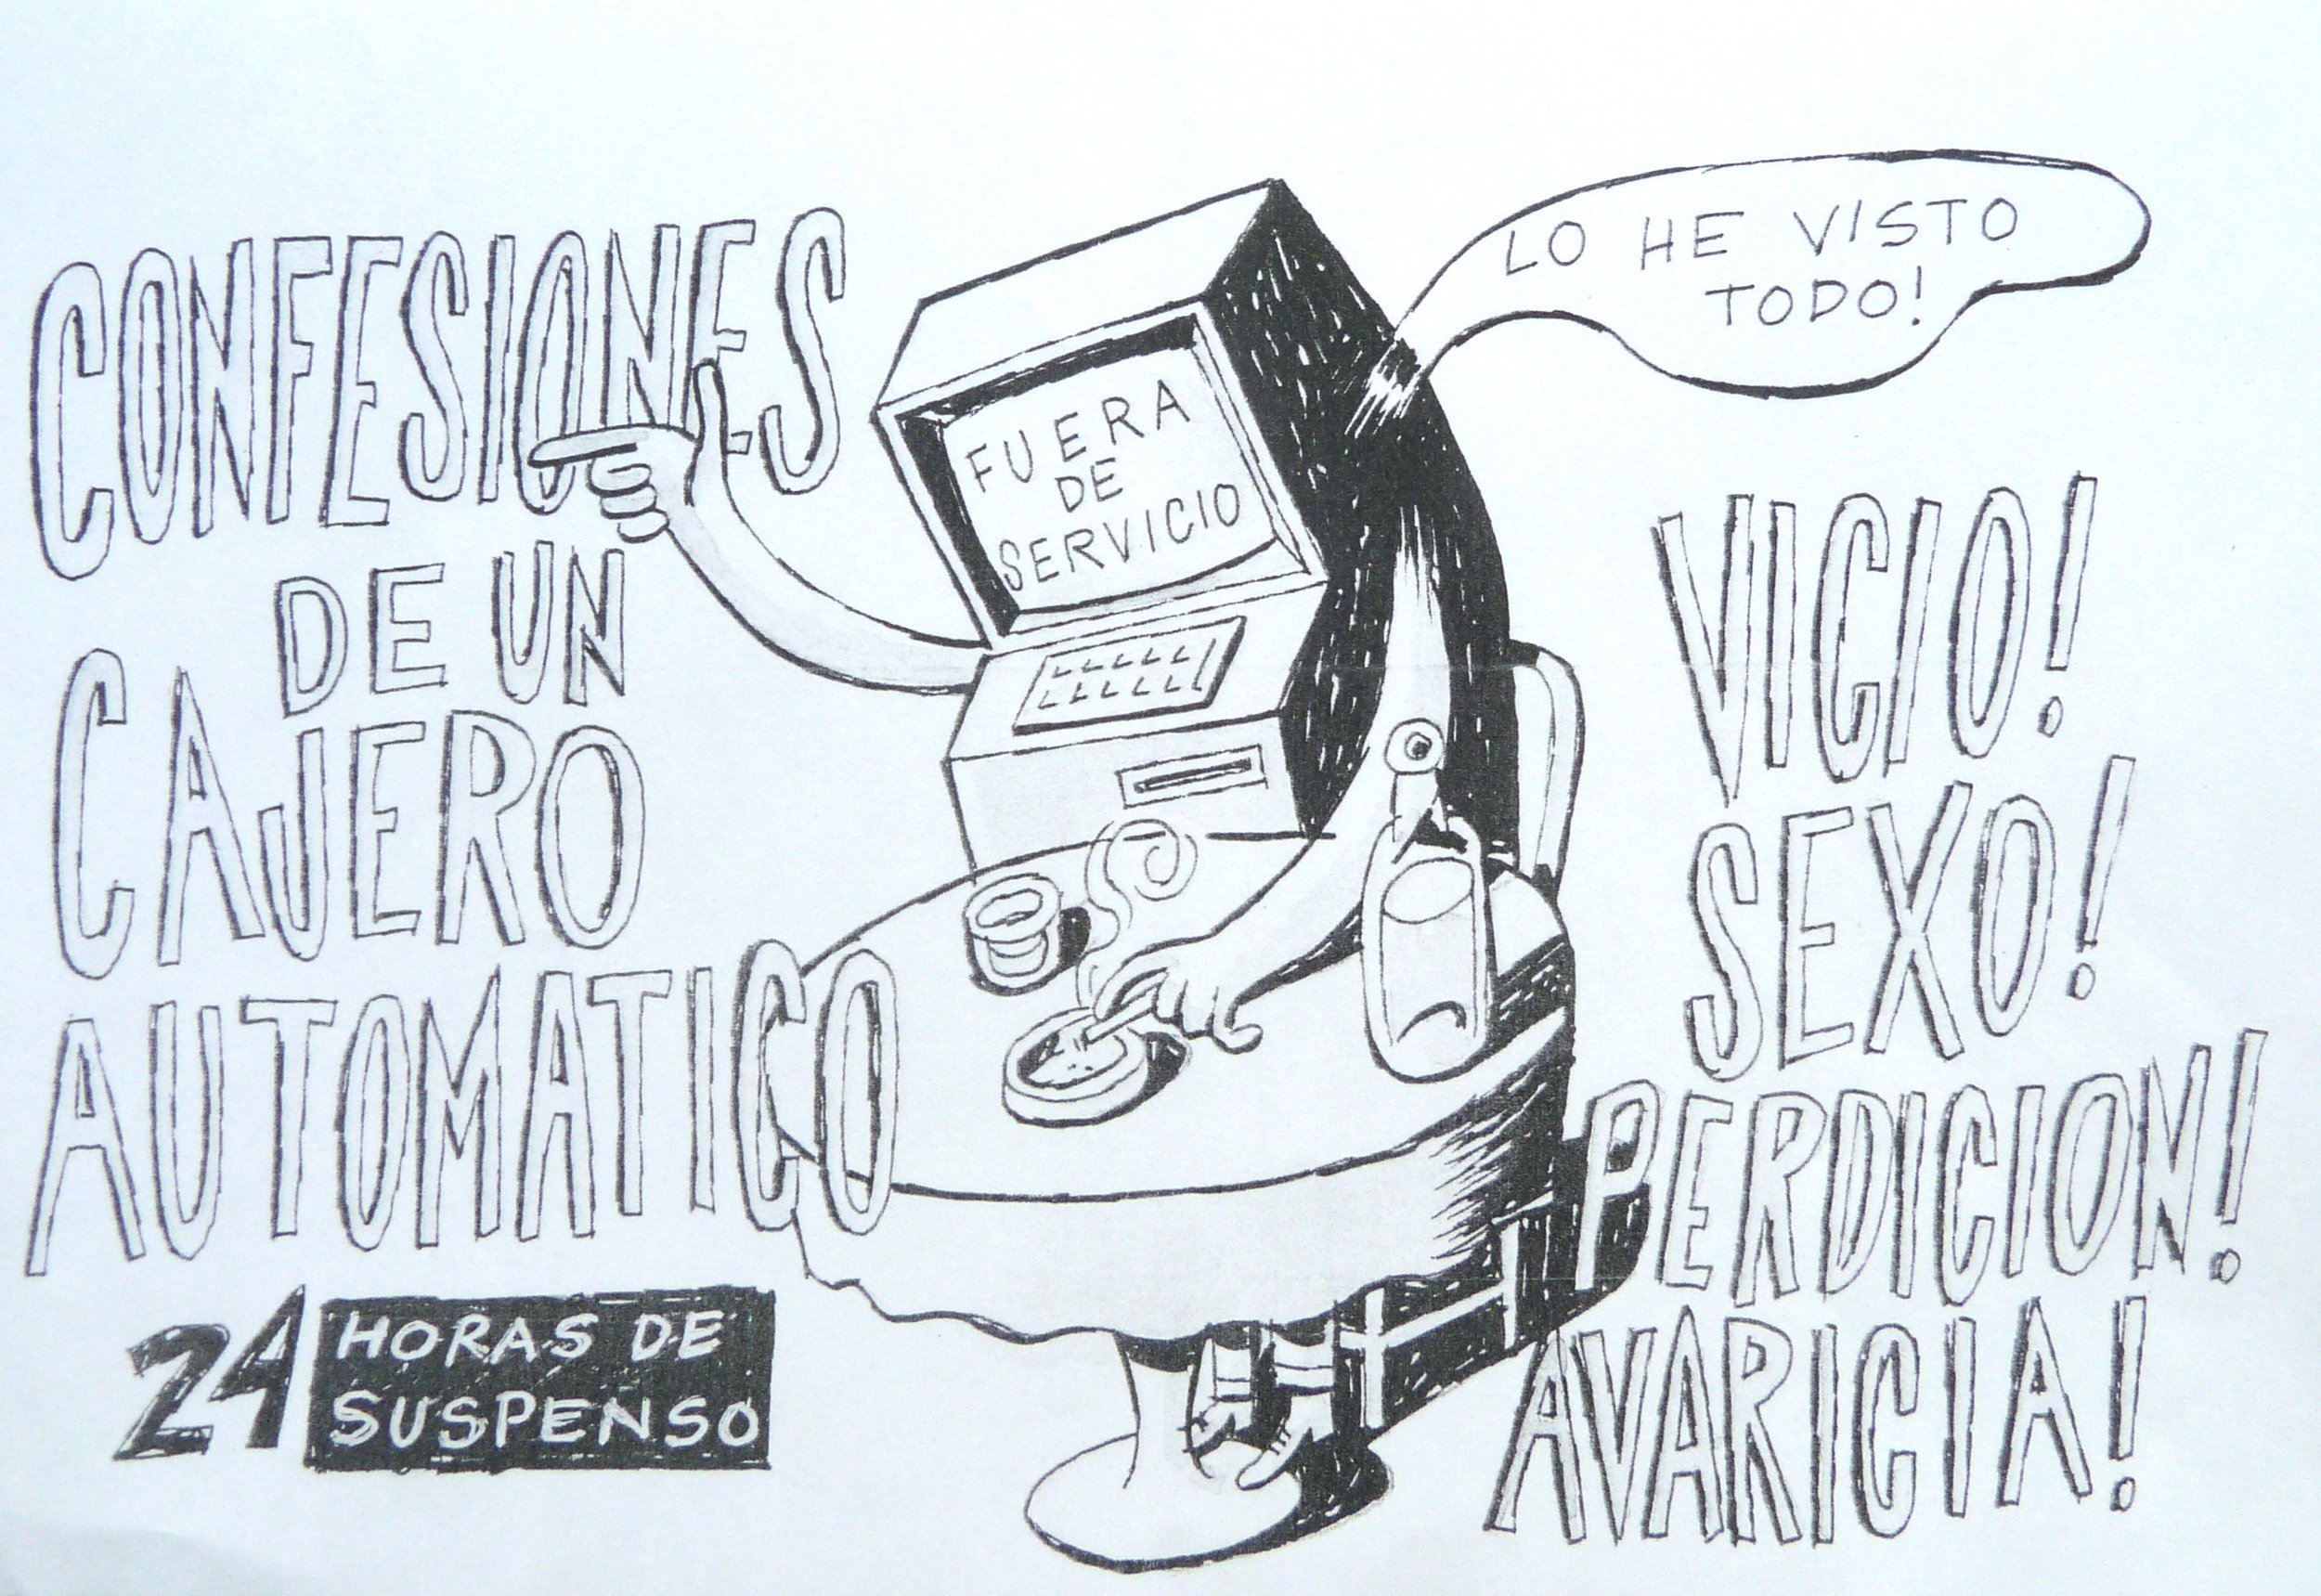 CONFESIONES
DE UN
CAJERO
AUTOMATICO
24 HORAS DE
SUSPENSO
FUERA
DE
SERVICIO
LO HE VISTO
TODO!
VICIO!
SEXO!
PERDICION!
AVARICIA!